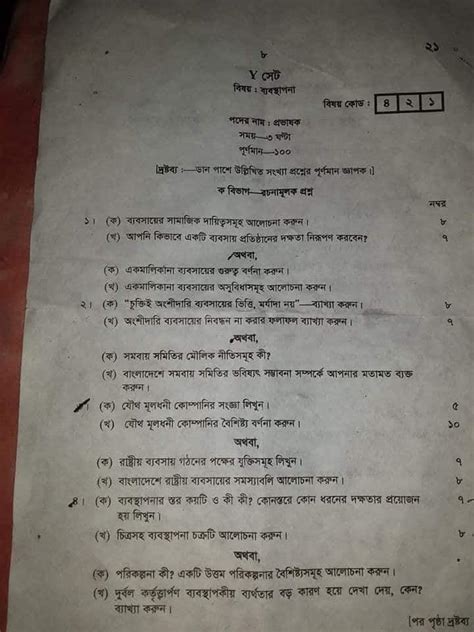 ২১
৮
Y সেট
বিষয় : ব্যবস্থাপনা
বিষয় কোড : ৪ ২ ১
পদের নাম : প্রভাষক
সময়—৩ ঘণ্টা
পূর্ণমান—১০০
[দ্রষ্টব্য :—ডান পাশে উল্লিখিত সংখ্যা প্রশ্নের পূর্ণমান জ্ঞাপক।]
ক বিভাগ—রচনামূলক প্রশ্ন
নম্বর
১। (ক) ব্যবসায়ের সামাজিক দায়িত্বসমূহ আলোচনা করুন। ৮
(খ) আপনি কিভাবে একটি ব্যবসায় প্রতিষ্ঠানের দক্ষতা নিরূপণ করবেন? ৭
অথবা,
(ক) একমালিকানা ব্যবসায়ের গুরুত্ব বর্ণনা করুন।
(খ) একমালিকানা ব্যবসায়ের অসুবিধাসমূহ আলোচনা করুন।
২। (ক) “চুক্তিই অংশীদারি ব্যবসায়ের ভিত্তি, মর্যাদা নয়”—ব্যাখ্যা করুন। ৮
(খ) অংশীদারি ব্যবসায়ের নিবন্ধন না করার ফলাফল ব্যাখ্যা করুন। ৭
অথবা,
(ক) সমবায় সমিতির মৌলিক নীতিসমূহ কী?
(খ) বাংলাদেশে সমবায় সমিতির ভবিষ্যৎ সম্ভাবনা সম্পর্কে আপনার মতামত ব্যক্ত
করুন।
(ক) যৌথ মূলধনী কোম্পানির সংজ্ঞা লিখুন। ৫
(খ) যৌথ মূলধনী কোম্পানির বৈশিষ্ট্য বর্ণনা করুন। ১০
অথবা,
(ক) রাষ্ট্রীয় ব্যবসায় গঠনের পক্ষের যুক্তিসমূহ লিখুন।
(খ) বাংলাদেশে রাষ্ট্রীয় ব্যবসায়ের সমস্যাবলি আলোচনা করুন।
৪। (ক) ব্যবস্থাপনার স্তর কয়টি ও কী কী? কোনস্তরে কোন ধরনের দক্ষতার প্রয়োজন ৭
হয় লিখুন।
(খ) চিত্রসহ ব্যবস্থাপনা চক্রটি আলোচনা করুন। ৮
অথবা,
(ক) পরিকল্পনা কী? একটি উত্তম পরিকল্পনার বৈশিষ্ট্যসমূহ আলোচনা করুন।
(খ) দুর্বল কর্তৃত্বার্পণ ব্যবস্থাপকীয় ব্যর্থতার বড় কারণ হয়ে দেখা দেয়, কেন?
ব্যাখ্যা করুন।
[পর পৃষ্ঠা দ্রষ্টব্য